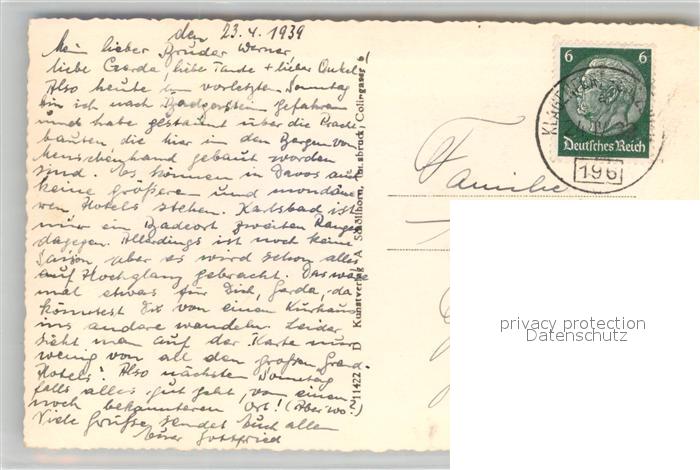 den 23.4.1939
Mein lieber Bruder Werner,
liebe Gerda, liebe Tante + lieber Onkel!
Also heute am vorletzten Sonntag
bin ich nach Badgastein gefahren
und habe gestaunt über die Pracht-
bauten, die hier in den Bergen von
Menschenhand gebaut worden
sind. Es können in Davos auch
keine größeren und mondäne-
ren Hotels stehen. Karlsbad ist
nur ein Badeort zweiten Ranges
dagegen. Allerdings ist noch keine
Saison, aber es wird schon alles
auf Hochglanz gebracht. Das wäre
mal etwas für Dich, Gerda, da
könntest Du von einem Kurhaus
ins andere wandeln. Leider
sieht man auf der Karte nur
wenig von all den großen "Grand-
Hotels". Also nächsten Sonntag
falls alles gut geht, von einem
noch bekannteren Ort! (Aber wo?)
Viele Grüße sendet Euch allen
Euer Gottfried
11422 D Kunstverlag A Schöllhorn, Innsbruck, Colingasse
6 6
Deutsches Reich
196
Familie
privacy protection
Datenschutz